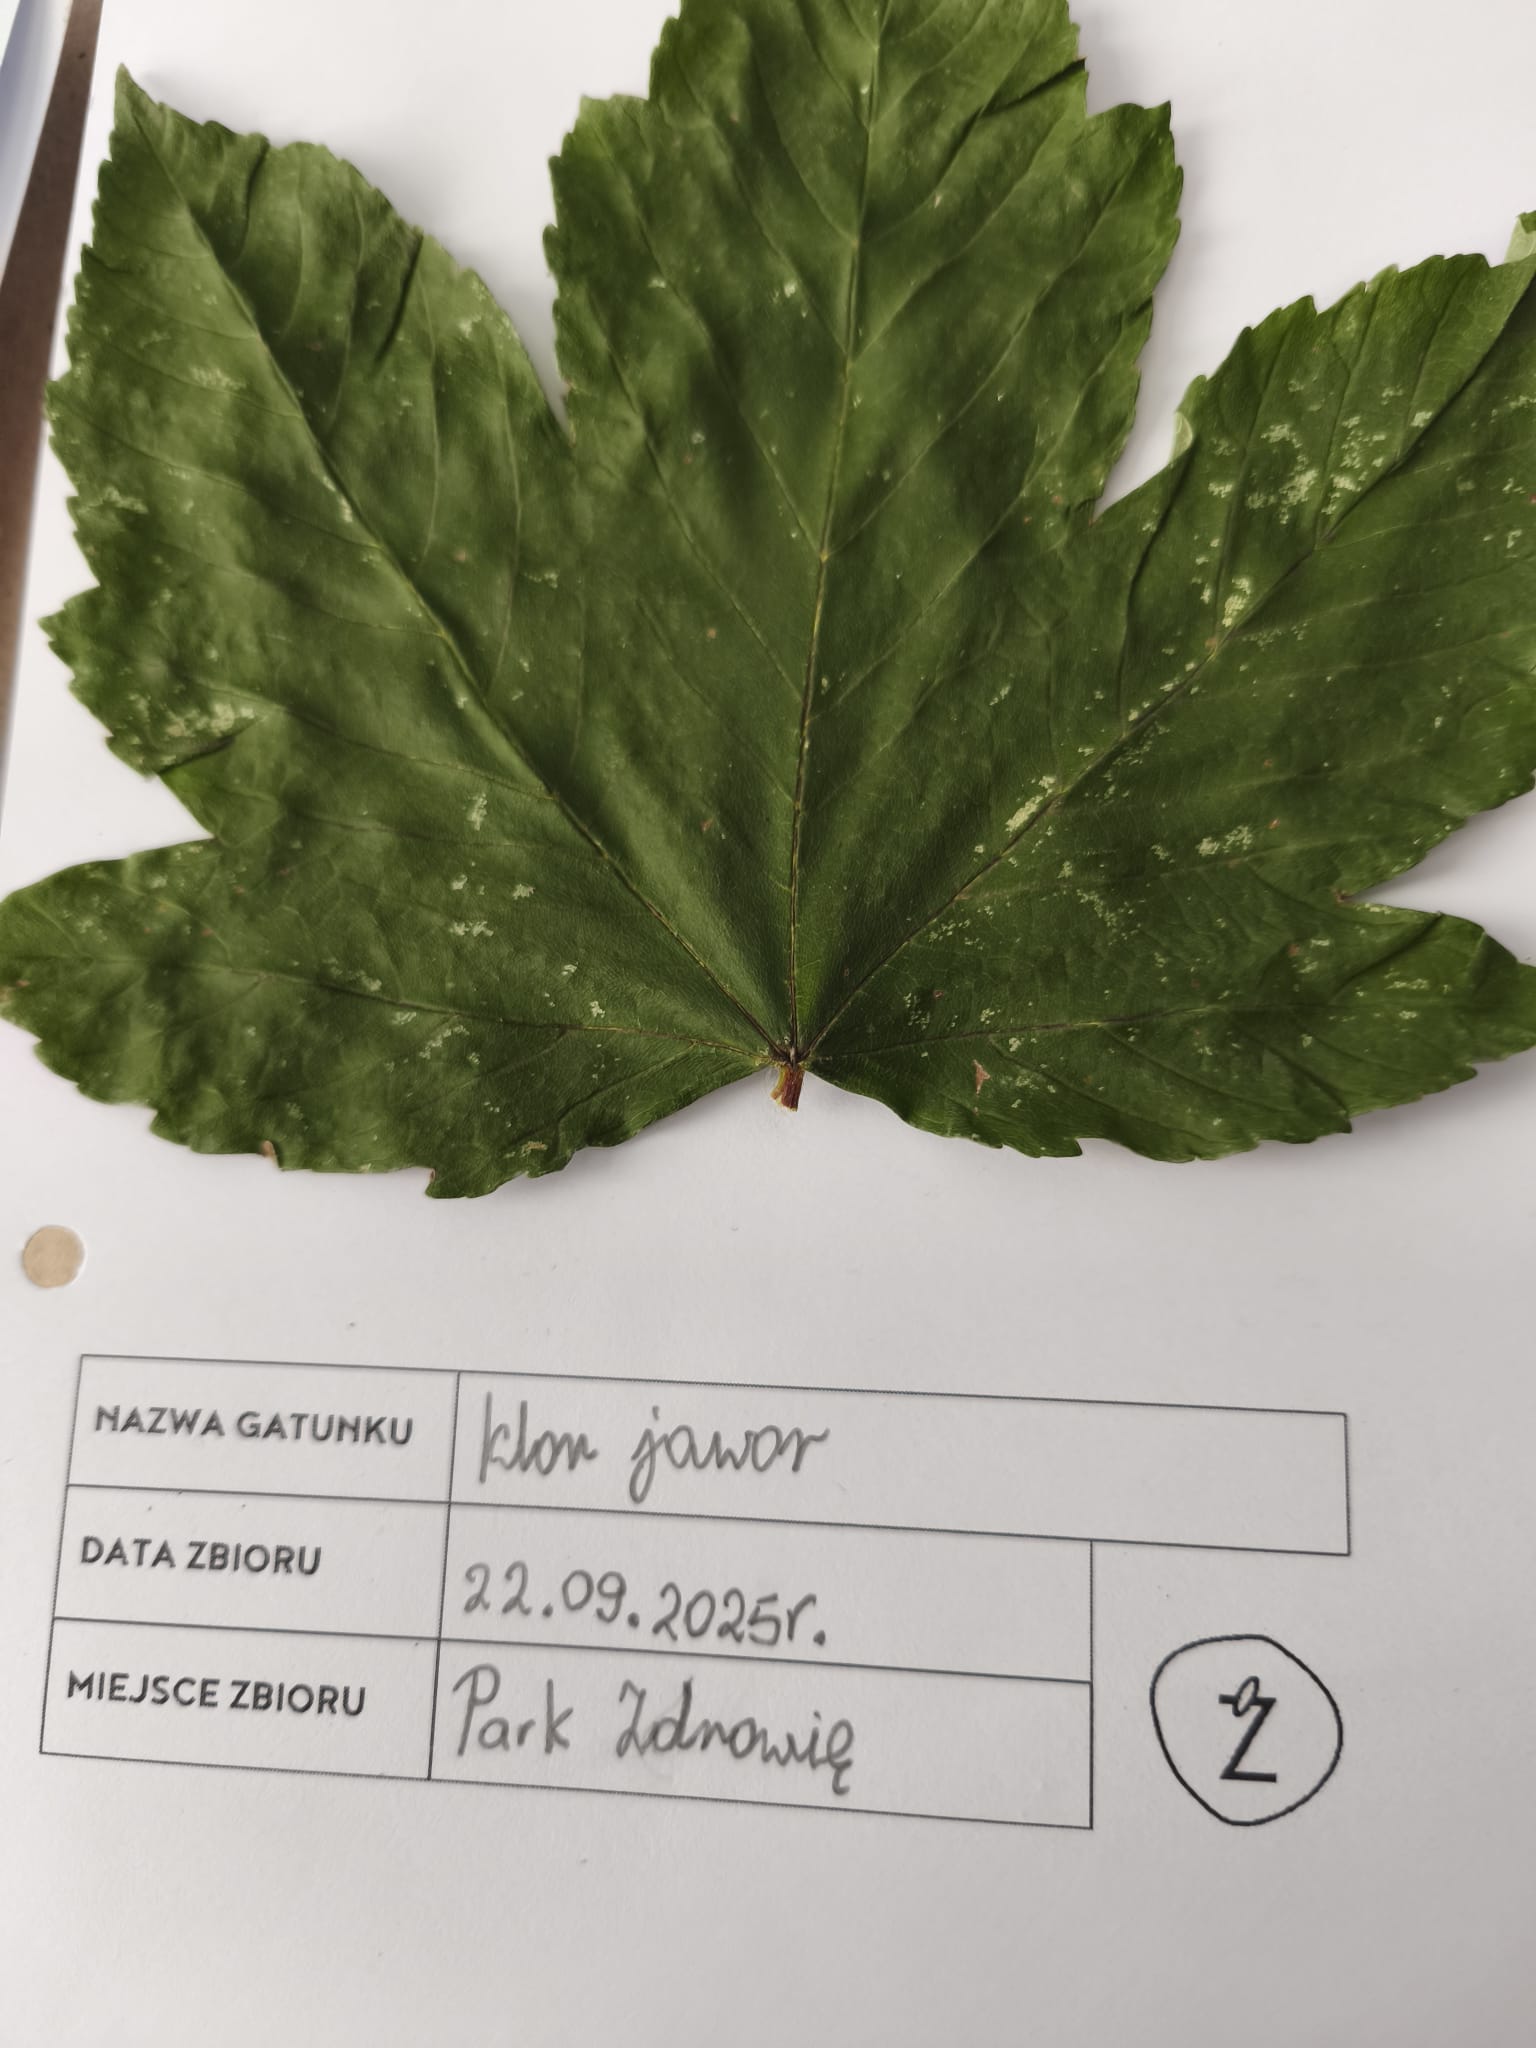 NAZWA GATUNKU klon jawor
DATA ZBIORU 22.09.2025r.
MIEJSCE ZBIORU Park Zdrowię
Ż